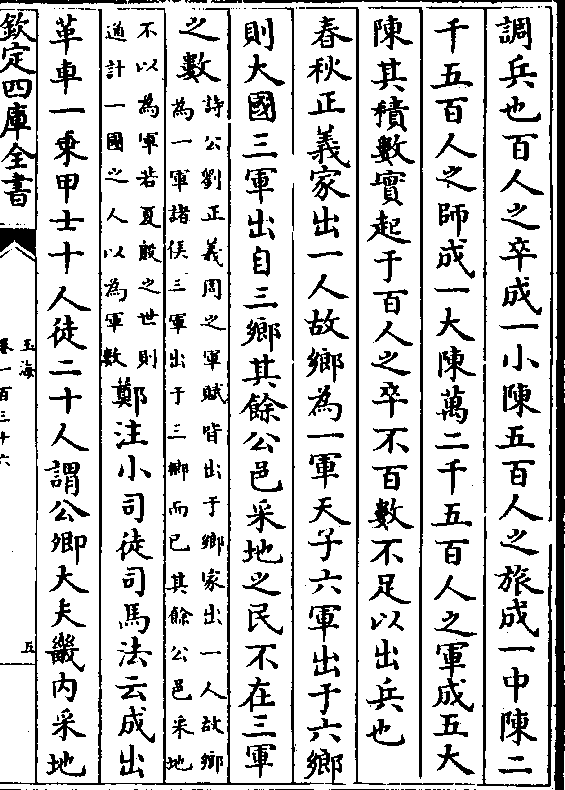 調兵也百人之卒成一小陳五百人之旅成一中陳二
千五百人之師成一大陳萬二千五百人之軍成五大
陳其積數實起于百人之卒不百數不足以出兵也
春秋正義家出一人故鄉為一軍天子六軍出于六鄉
則大國三軍出自三鄉其餘公邑采地之民不在三軍
之數
詩公劉正義周之軍賦皆出于鄉家出一人故鄉
為一軍諸侯三軍出于三鄉而已其餘公邑采地
不以為軍若夏殷之世則
通計一國之人以為軍數
鄭注小司徒司馬法云成出
革車一乘甲士十人徒二十人謂公卿大夫畿内采地
欽定四庫全書
玉海
卷一百三十六
五